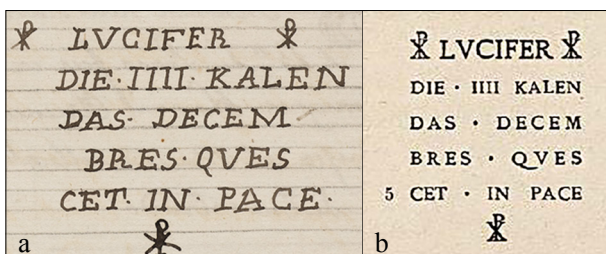 ☧ LVCIFER ☧
DIE·IIII·KALEN
DAS· DECEM
BRES·QVES
CET· IN· PACE·
☧
a
☧ LVCIFER ☧
DIE · IIII KALEN
DAS · DECEM
BRES · QVES
5 CET · IN PACE
☧
b